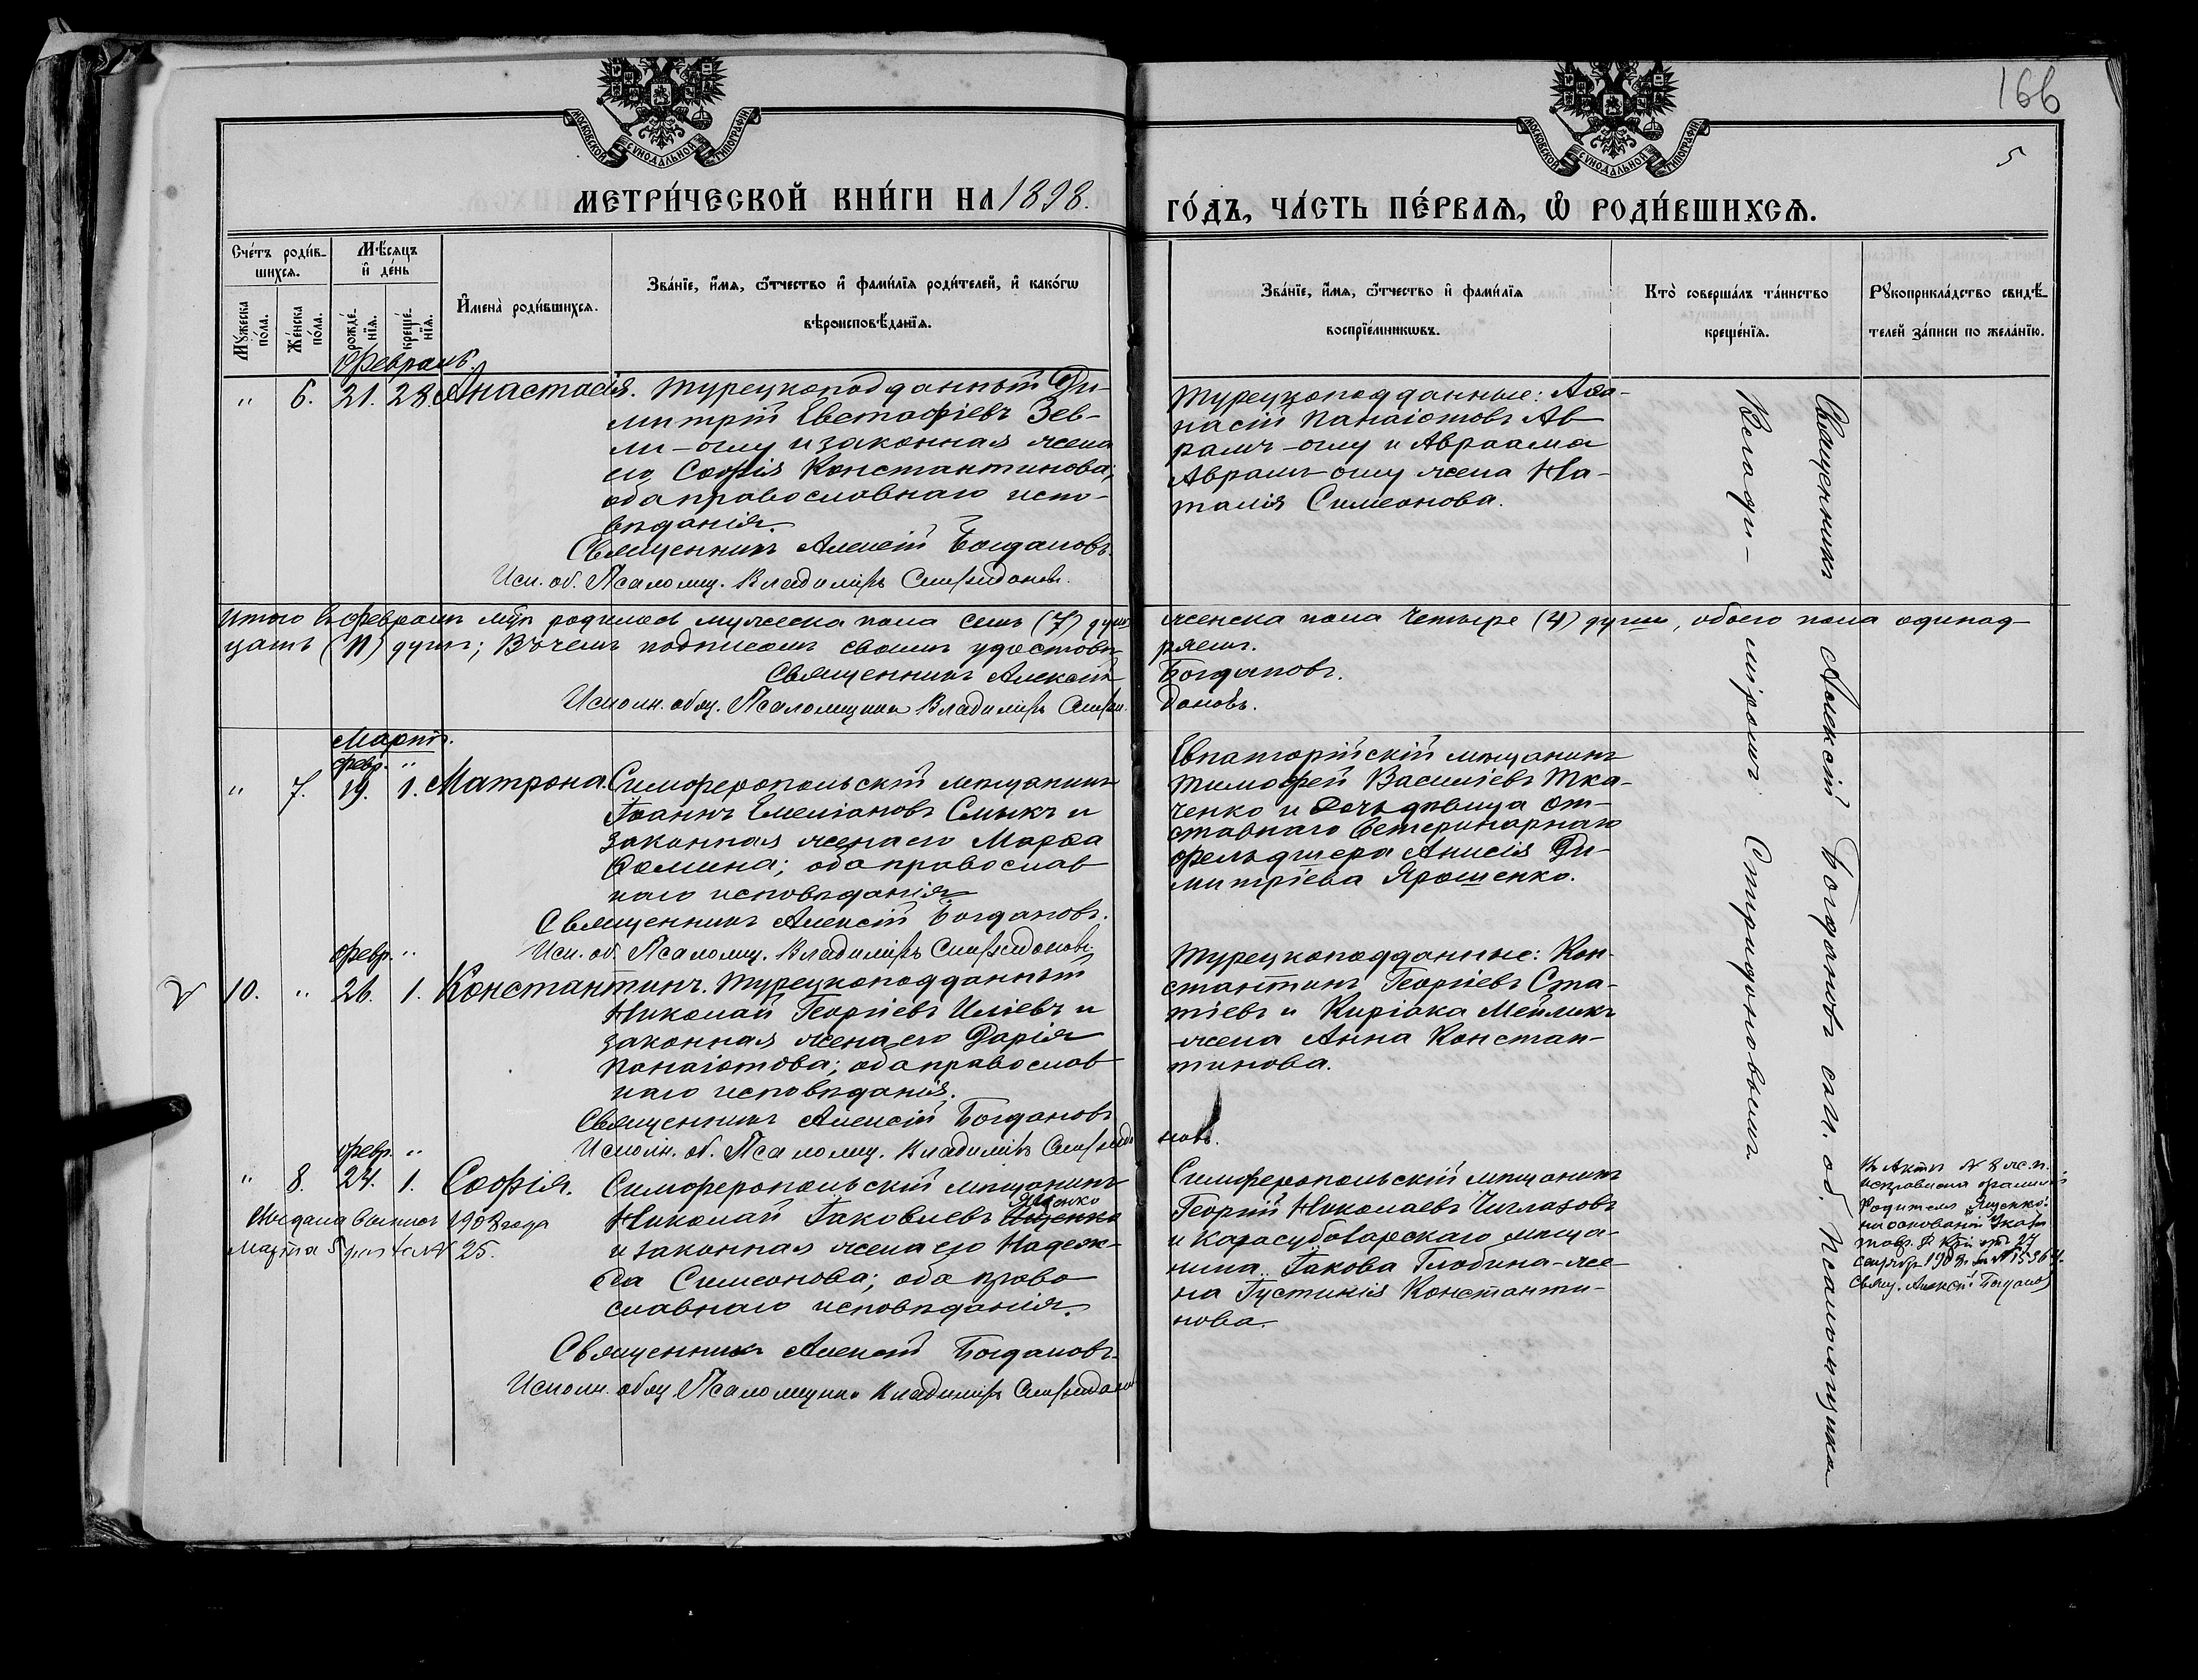 166
5
МОСКОВСКОЙ СѴНОДАЛЬНОЙ ТИПОГРАФІИ
МОСКОВСКОЙ СѴНОДАЛЬНОЙ ТИПОГРАФІИ
МЕТРИ́ЧЕСКОЙ КНИ́ГИ НА 1898.
ГО́ДЪ, ЧА́СТЬ ПЕ́РВАѦ, Ѽ РОДИ́ВШИХСѦ.
Сче́тъ роди́в-
шихсѧ.
Мѣ́сѧцъ
и҆ де́нь
Мꙋ́жеска
по́ла.
Же́нска
по́ла.
рожде́-
нїѧ.
креще́-
нїѧ.
И҆мена̀ роди́вшихсѧ.
Зва́нїе, и҆́мѧ, ѻ҆́тчество и҆ фами́лїѧ роди́телей, и҆ како́гѡ
вѣроисповѣ́данїѧ.
Зва́нїе, и҆́мѧ, ѻ҆́тчество и҆ фами́лїѧ
воспрїе́мникѡвъ.
Кто̀ соверша́лъ та́инство
креще́нїѧ.
Рꙋкоприкла́дство свидѣ́-
телей за́писи по жела́нїю.
Февраль.
" 6. 21. 28. Анастасія. Турецкоподданный Ди-
митрій Евстафіевъ Зев-
ли-оглу и законная жена
его Софія Константинова;
оба православнаго испо-
вѣданія.
Священникъ Алексій Богдановъ.
Исп. об. Псаломщ. Владиміръ Спиридоновъ.
Турецкоподданные: Аѳа-
насій Панаіотовъ Ав-
рамъ-оглу и Авраама
Аврамъ-оглу жена На-
талія Симеонова.
Итого въ февралѣ мцѣ родилось мужеска пола семь (7) душъ женска пола четыре (4) души, обоего пола одинад-
цать (11) душъ; Въ чемъ подписомъ своимъ удостовѣ-
ряемъ.
Священникъ Алексій Богдановъ.
Исполн. обяз. Псаломщика Владиміръ Спири-
доновъ.
Мартъ.
февр. "
" 7. 19. 1. Матрона. Симферопольскій мѣщанинъ
Іоаннъ Емеліановъ Смыкъ и
законная жена его Марѳа
Ѳомина; оба православ
наго исповѣданія.
Священникъ Алексій Богдановъ.
Исп. об. Псаломщ. Владиміръ Спиридоновъ.
Евпаторійскій мѣщанинъ
Тимофей Василіевъ Тка-
ченко и дочь дѣвица от-
ставнаго ветеринарнаго
фельдшера Анисія Ди-
митріева Ярошенко.
февр. "
10. " 26. 1. Константинъ. Турецкоподданный
Николай Георгіевъ Иліевъ и
законная жена его Дарія
Панаіотова; оба православ
наго исповѣданія.
Священникъ Алексій Богдановъ
Исполн. об. Псаломщ. Владиміръ Спиридо
новъ.
Турецкоподданные: Кон-
стантинъ Георгіевъ Ста-
тіевъ и Киріака Мейликъ
-жена Анна Констан-
тинова.
февр. "
" 8. 24. 1. Софія. Симферопольскій мѣщанинъ
Николай Іаковлевъ Яценко
и законная жена его Надеж-
да Симеонова; оба право
славнаго исповѣданія.
Священникъ Алексій Богдановъ.
Исполн. обяз Псаломщика Владиміръ Спиридонов
Выдана выпись 1908 года
Марта 5 дня за № 25.
Симферопольскій мѣщанинъ
Георгій Николаевъ Чиглазовъ
и Карасубазарскаго мѣща-
нина Іакова Глобина-же
на Іустинія Константи-
нова.
Въ Актѣ № 8 ж. п.
исправлена фамилія
Родителя "Яценко"
на основаніи Указа
Тавр. Д. К-ріи отъ 27
Свящ. Алексій Богданов
Священникъ Алексій Богдановъ съ и. об. Псаломщика
Владиміромъ Спиридоновымъ.